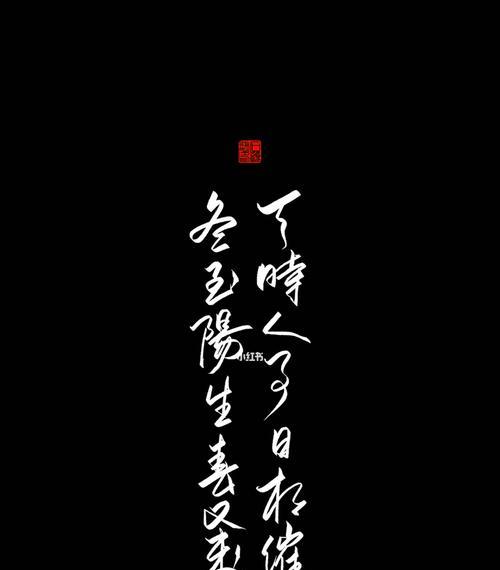 天時人事日相催
冬至陽生春又來
小红书